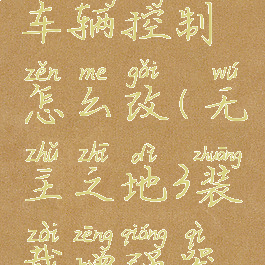 车辆控制
zěn me gǎi wú
怎么改(无
zhǔ zhī dì zhuāng
主之地)装
zài zēng qiáng qì
载增强器